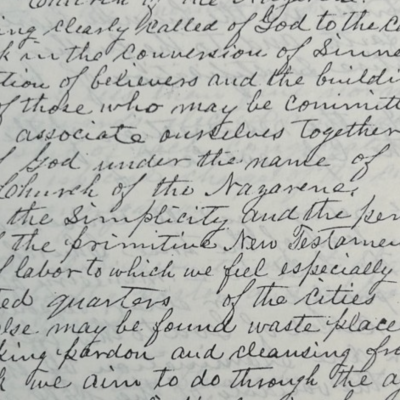 Church of the Nazarene.
ing clearly called of God to the ca
k in the conversion of Sinne
tion of believers and the buildi
f those who may be committ
associate ourselves together
f God under the name of
Church of the Nazarene,
the Simplicity and the per
f the primitive New Testamen
f labor to which we feel especially
ted quarters of the cities
else may be found waste place
king pardon and cleansing fro
k we aim to do through the a